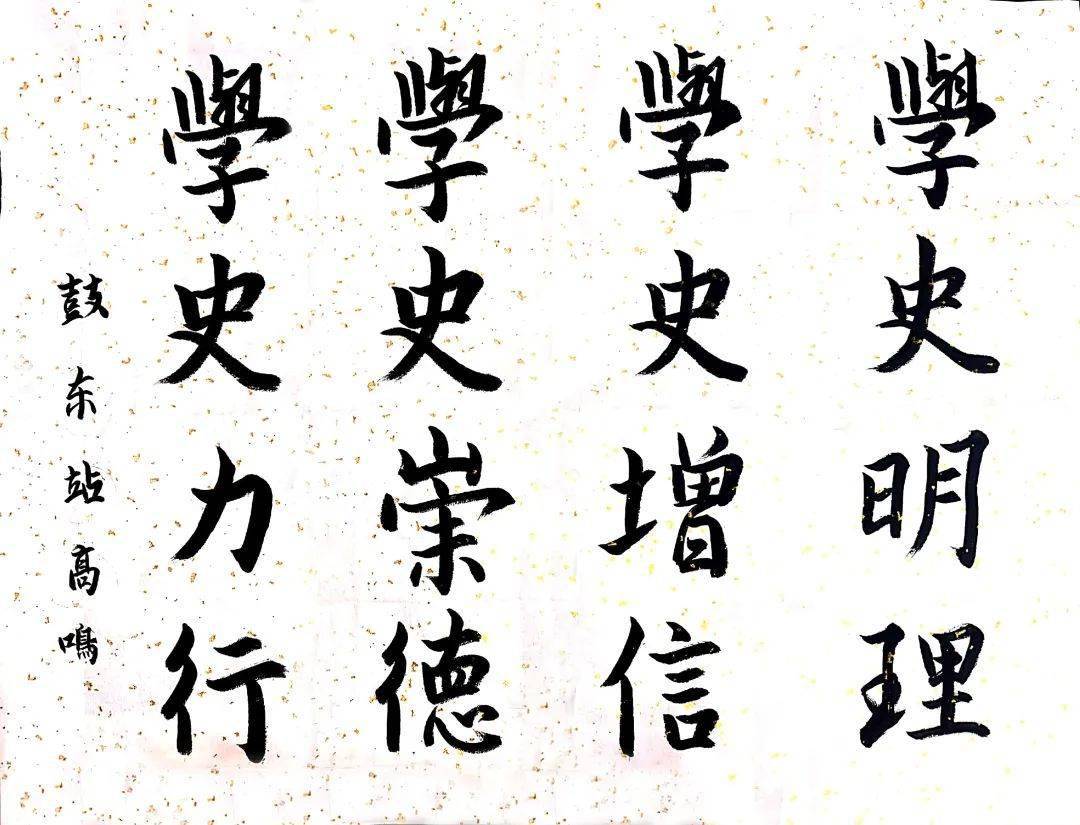 學史明理
學史增信
學史崇德
學史力行
鼓东站高鳴